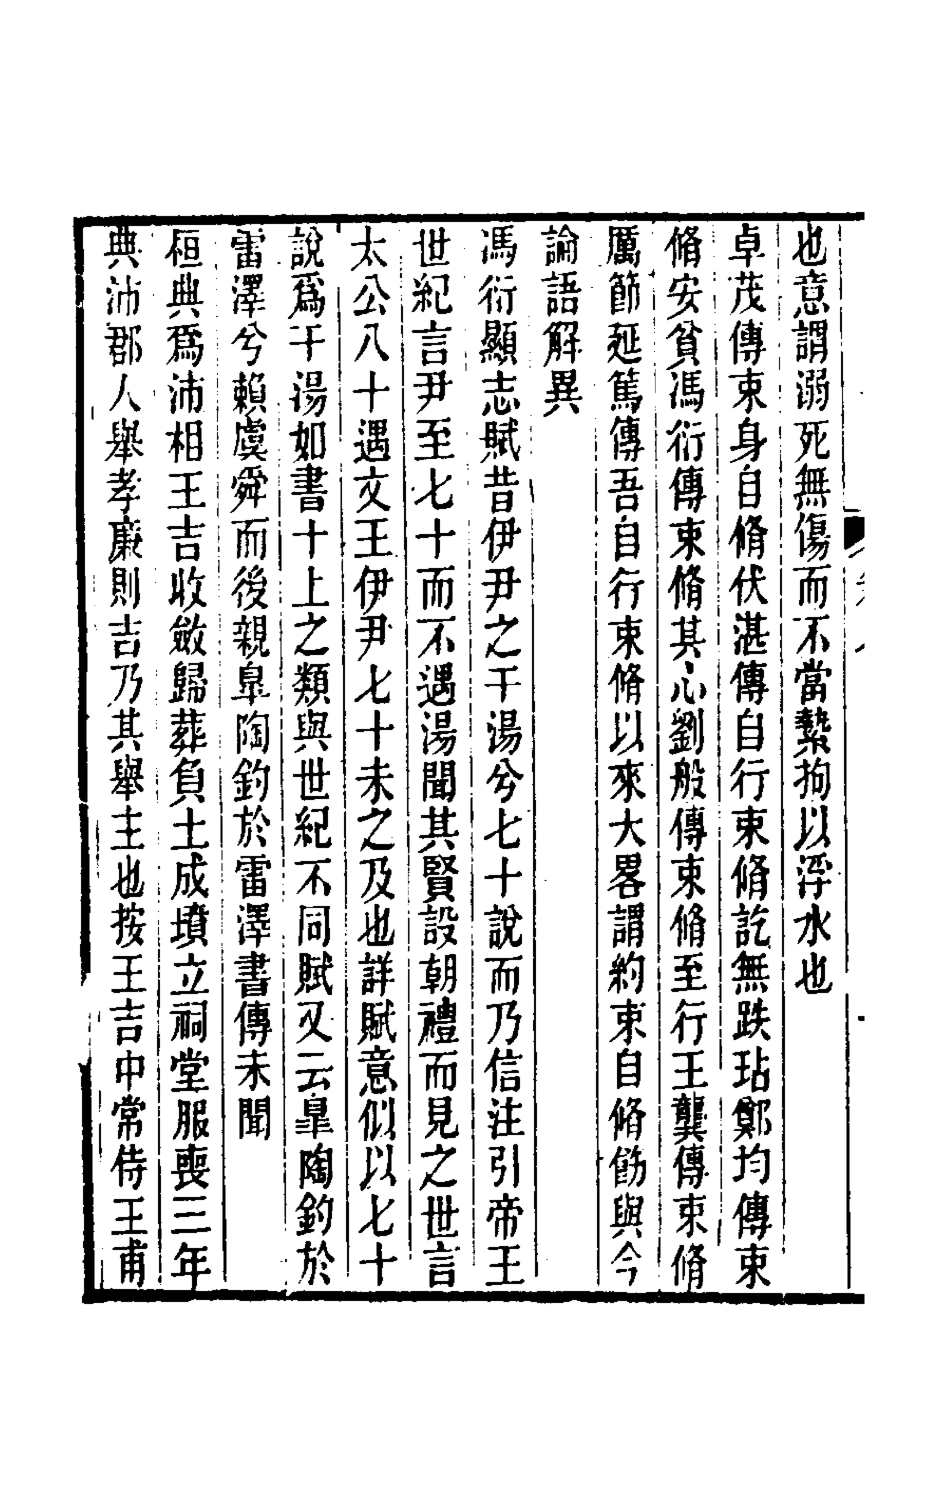 也意謂溺死無傷而不當縶拘以浮水也
卓茂傳束身自脩伏湛傳自行束脩訖無跌玷鄭均傳束
脩安貧馮衍傳束脩其心劉般傳束脩至行王龔傳束脩
厲節延篤傳吾自行束脩以來大畧謂約束自脩飭與今
論語解異
馮衍顯志賦昔伊尹之干湯兮七十說而乃信注引帝王
世紀言尹至七十而不遇湯聞其賢設朝禮而見之世言
太公八十遇文王伊尹七十未之及也詳賦意似以七十
說爲干湯如書十上之類與世紀不同賦又云臯陶釣於
雷澤兮賴虞舜而後親臯陶釣於雷澤書傳未聞
桓典爲沛相王吉收斂歸葬負土成墳立祠堂服喪三年
典沛郡人舉孝廉則吉乃其舉主也按王吉中常侍王甫